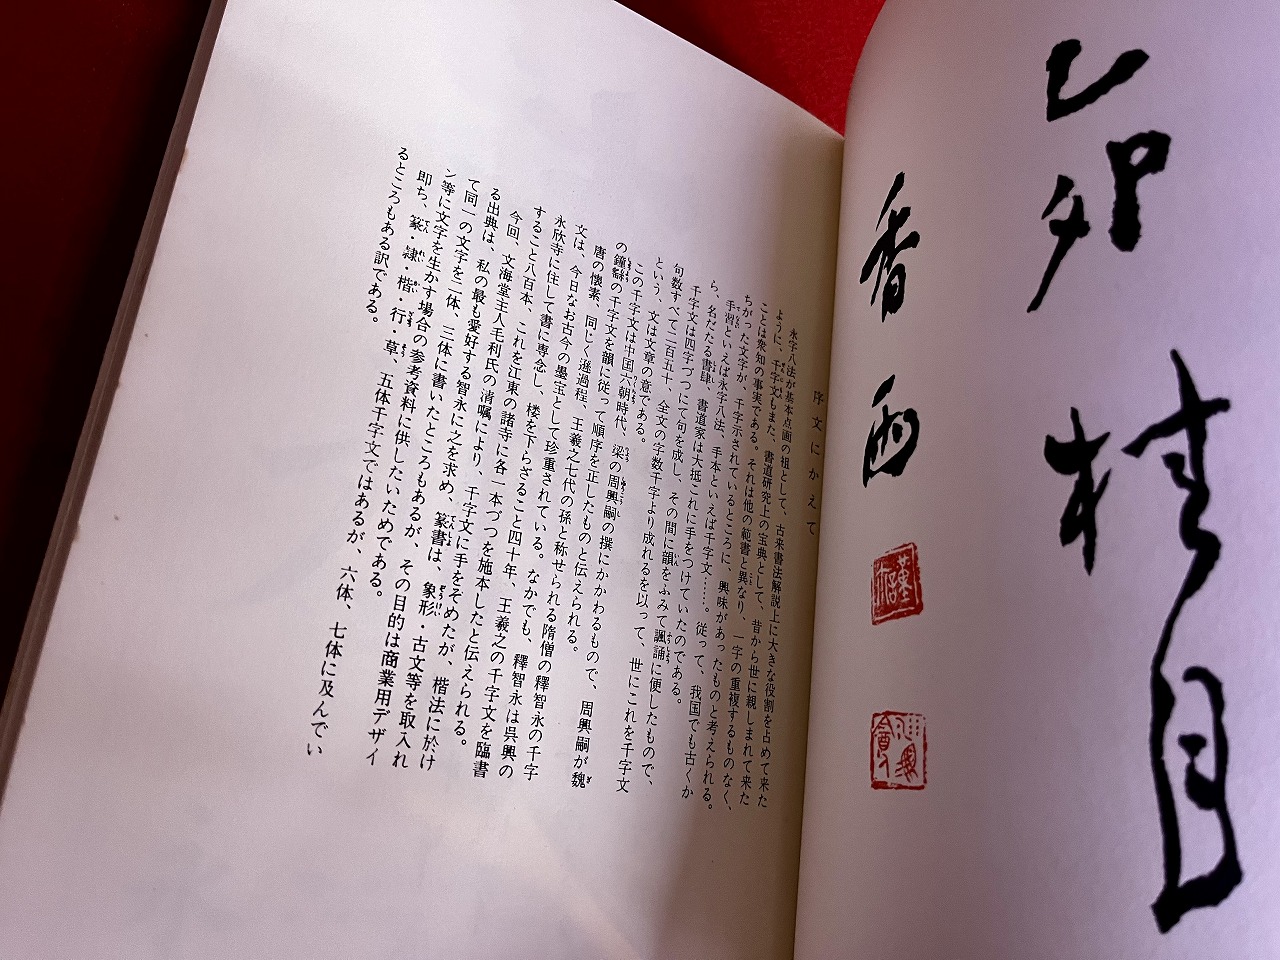 香雨
序文にかえて
永字八法が基本点画の祖として、古来書法解説上に大きな役割を占めて来た
ように、千字文もまた、書道研究上の宝典として、昔から世に親しまれて来た
ことは衆知の事実である。それは他の範書と異なり、一字の重複するものなく、
ちがった文字が、千字示されているところに、興味があったものと考えられる。
手習といえば永字八法、手本といえば千字文……。従って、我国でも古くか
ら、名だたる書肆、書道家は大抵これに手をつけていたのである。
千字文は四字づつにて句を成し、その間に韻をふみて諷誦に便したもので、
句数すべて二百五十、全文の字数千字より成れるを以って、世にこれを千字文
という、文は文章の意である。
この千字文は中国六朝時代、梁の周興嗣の撰にかかわるもので、周興嗣が魏
の鐘繇の千字文を韻に従って順序を正したものと伝えられる。
唐の懐素、同じく遜過程、王羲之七代の孫と称せられる隋僧の釋智永の千字
文は、今日なお古今の墨宝として珍重されている。なかでも、釋智永は呉興の
永欣寺に住して書に専念し、楼を下らざること四十年、王羲之の千字文を臨書
すること八百本、これを江東の諸寺に各一本づつを施本したと伝えられる。
今回、文海堂主人毛利氏の清嘱により、千字文に手をそめたが、楷法に於け
る出典は、私の最も愛好する智永に之を求め、篆書は、象形・古文等を取入れ
て同一の文字を二体、三体に書いたところもあるが、その目的は商業用デザイ
ン等に文字を生かす場合の参考資料に供したいためである。
即ち、篆・隷・楷・行・草、五体千字文ではあるが、六体、七体に及んでい
るところもある訳である。